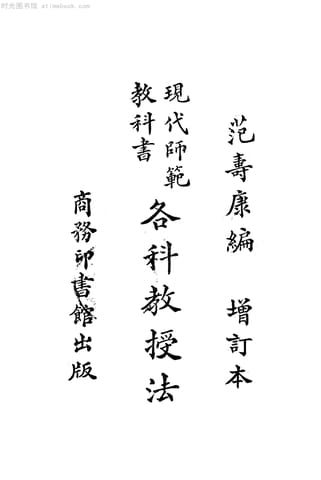 时光图书馆 atimebook.com
范壽康編 增訂本
現代師範
教科書
各科教授法
商務印書館出版